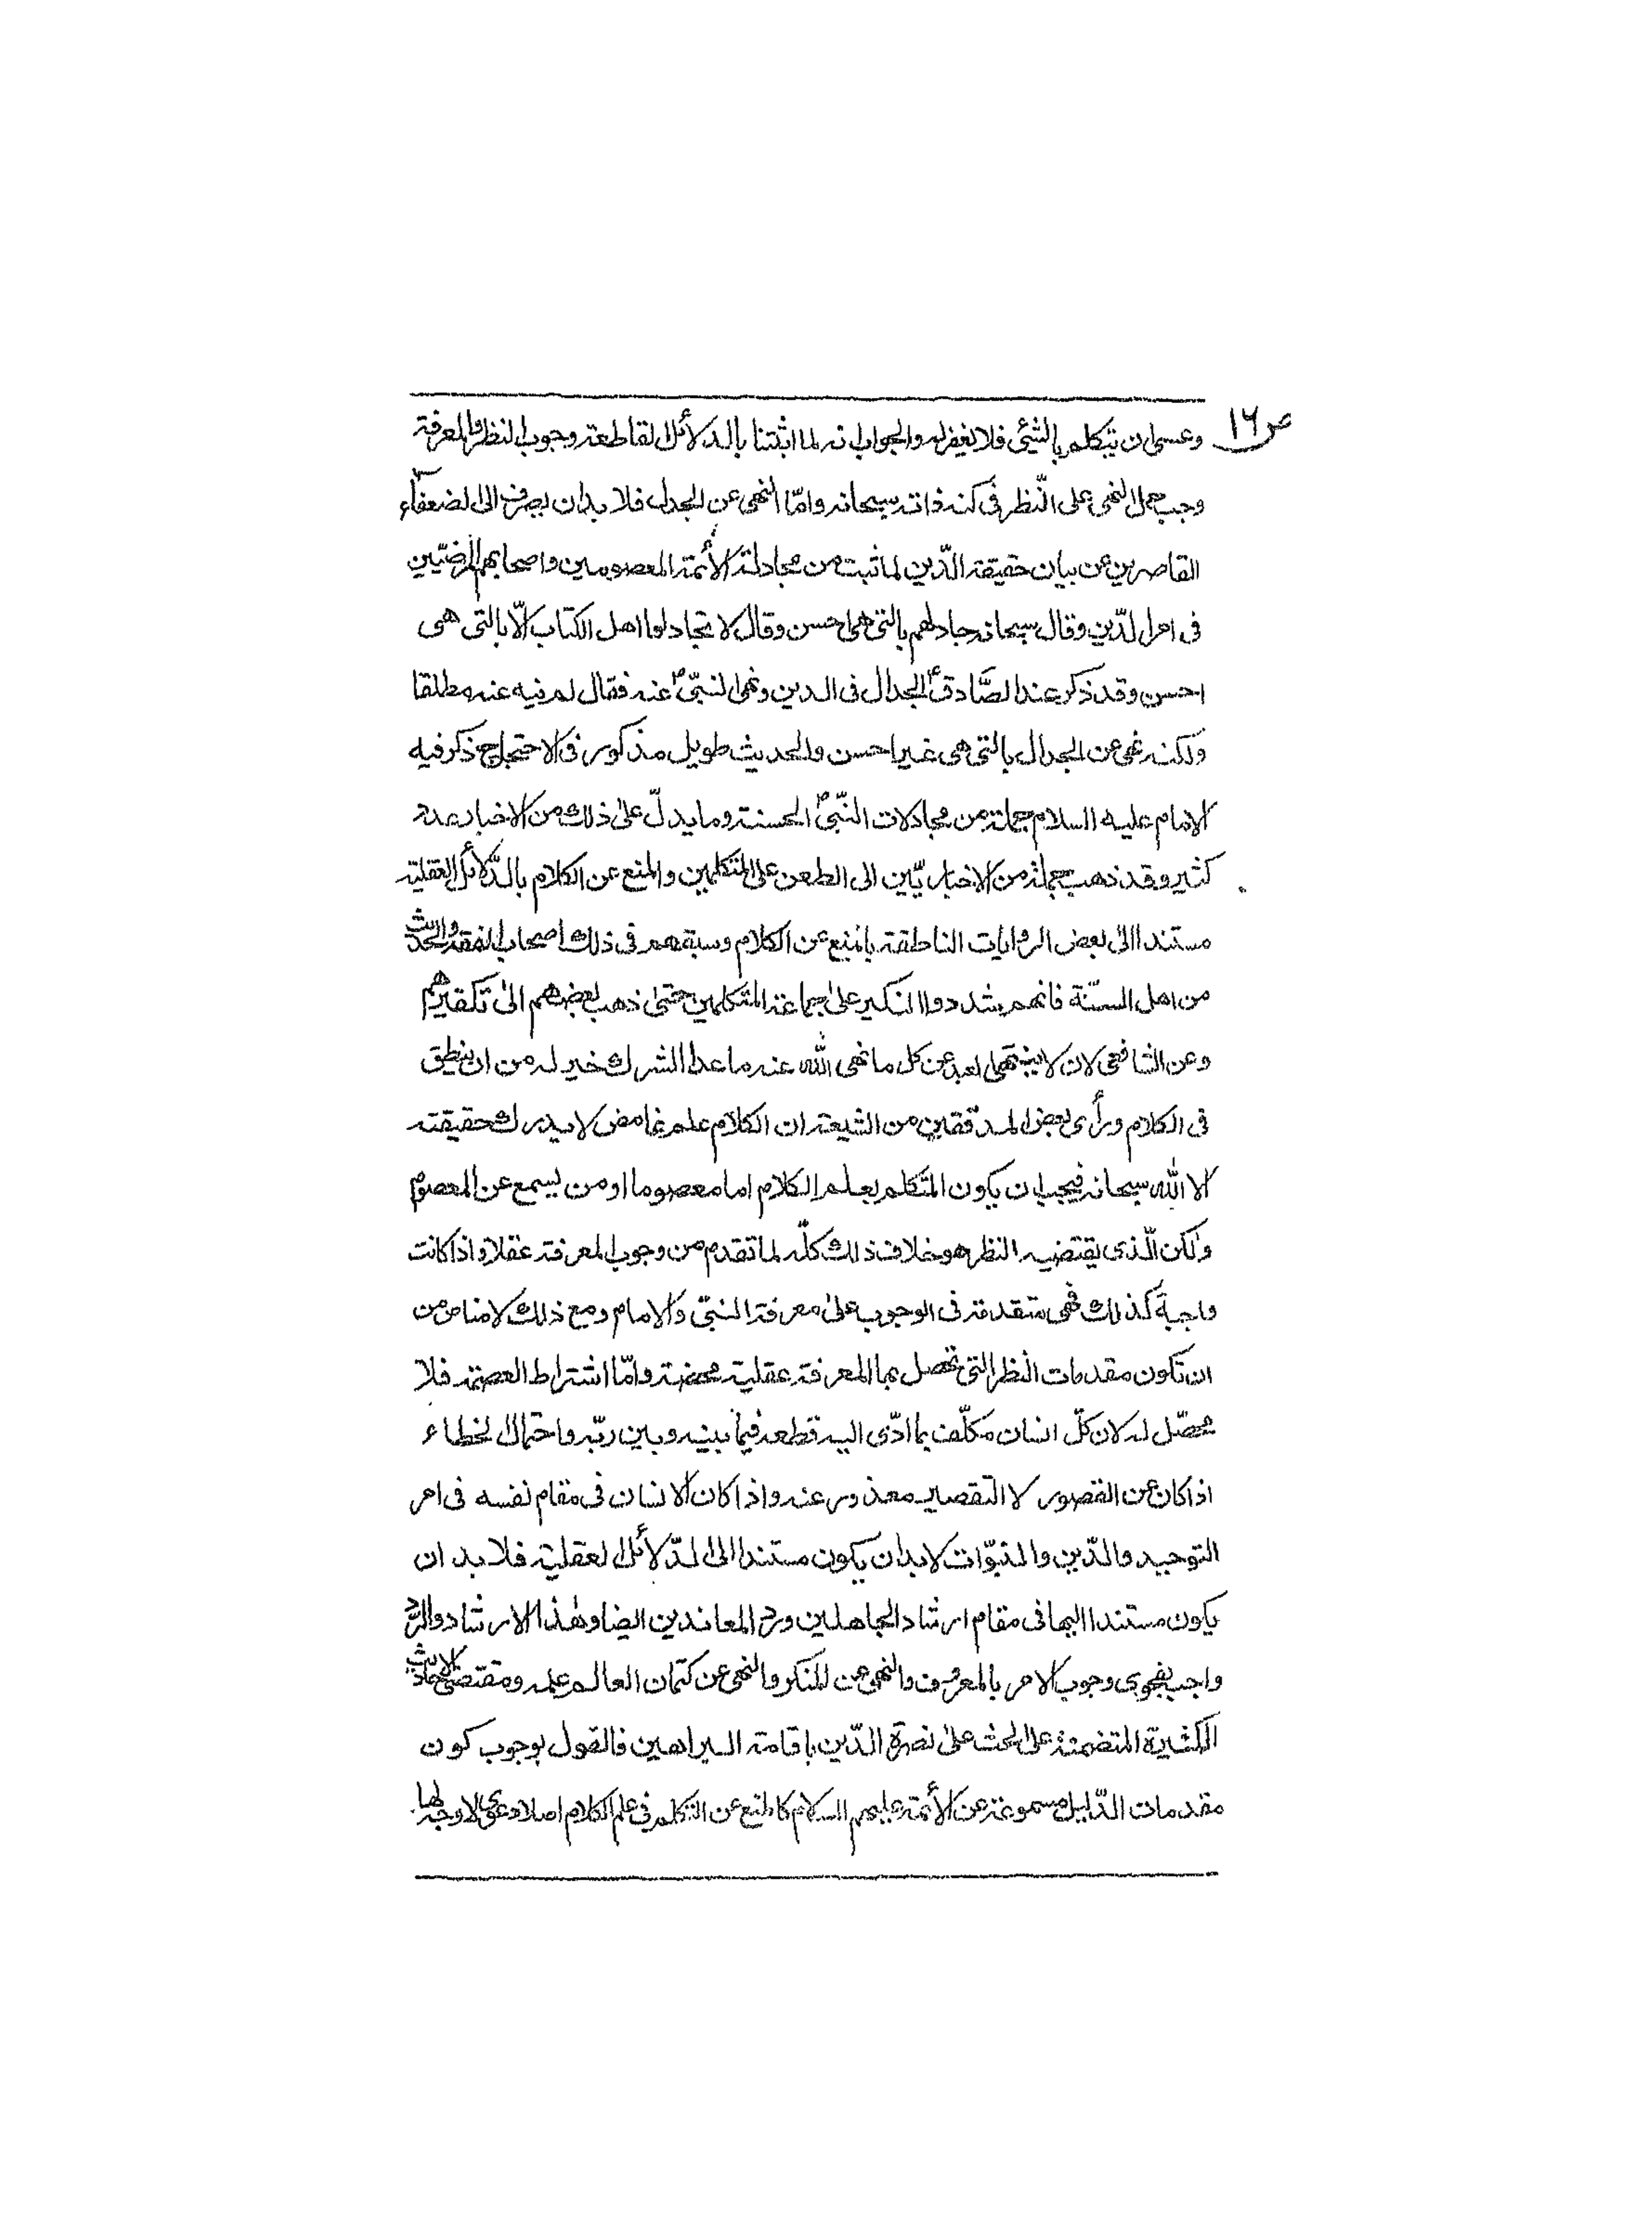 ص ١٦
وعسى ان يتكلم بالشئ فلا يغفر له والجواب انه لما اثبتنا بالدلائل القاطعة وجوب النظر والمعرفة
وجب حمل النهى على النّظر فى كنه ذاته سبحانه وامّا النهى عن الجدال فلا بد ان يصرف الى الضعفآء
القاصرين عن بيان حقيقة الدّين لما ثبت من مجادلة الأئمة المعصومين واصحابهم المرضيّين
فى امر الدّين وقال سبحانه جادلهم بالتى هى احسن وقال لا تجادلوا اهل الكتاب الّا بالتى هى
احسن وقد ذكر عند الصَّادق ع الجدال فى الدين ونهى النبىّ ص عنه فقال لم ينه عنه مطلقا
ولكنه نهى عن الجدال بالتى هى غير احسن والحديث طويل مذكور فى الاحتجاج ذكر فيه
الامام عليه السلام جملة من مجادلات النّبىّ ص الحسنة وما يدلّ على ذلك من الاخبار عدد
كثير وقد ذهب جملة من الاخباريّين الى الطعن على المتكلمين والمنع عن الكلام بالدّلائل العقلية
مستندا الى بعض الروايات الناطقة بالمنع عن الكلام وسبقهم فى ذلك اصحاب الفقه والحديث
من اهل السنّة فانهم شددوا النكير على جماعة المتكلمين حتى ذهب بعضهم الى تكفيرهم
وعن الشافعى لان لا ينتهى العبد عن كل ما نهى الله عنه ما عدا الشرك خير له من ان ينطق
فى الكلام ورأى بعض المدقّقين من الشيعة ان الكلام علم غامض لا يدرك حقيقته
الا الله سبحانه فيجب ان يكون المتكلم بعلم الكلام اما معصوما او من يسمع عن المعصوم
ولكن الّذى يقتضيه النظر هو خلاف ذلك كلّه لما تقدم من وجوب المعرفة عقلا واذا كانت
واجبة كذلك فهى متقدمة فى الوجوب على معرفة النبىّ والامام ومع ذلك لا مناص من
ان تكون مقدمات النظر التى تحصل بها المعرفة عقلية محضة وامّا اشتراط العصمة فلا
محصّل له لان كلّ انسان مكلّف بما ادّى اليه قطعه فيما بينه وبين ربّه واحتمال الخطاء
اذا كان عن القصور لا التقصير معذور عنه واذا كان الانسان فى مقام نفسه فى امر
التوحيد والدّين والنبوّات لا بد ان يكون مستندا الى الدّلائل العقلية فلا بد ان
يكون مستندا اليها فى مقام ارشاد الجاهلين ورد المعاندين ايضا وهذا الارشاد والردّ
واجب بفحوى وجوب الامر بالمعروف والنهى عن المنكر والنهى عن كتمان العالم علمه ومقتضى الاحاديث
الكثيرة المتضمنة على الحث على نصرة الدّين باقامة البراهين فالقول بوجوب كون
مقدمات الدّليل مسموعة عن الأئمة عليهم السلام كالمنع عن التكلم فى علم الكلام اصلا دعوى لا وجه لها